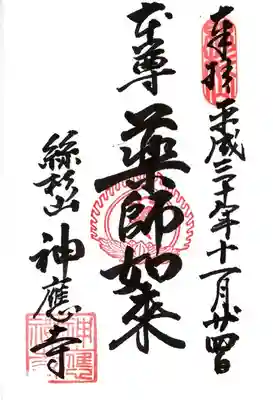 奉拝 平成三十年十一月廿四日
本尊 薬師如来
絲杉山 神應寺